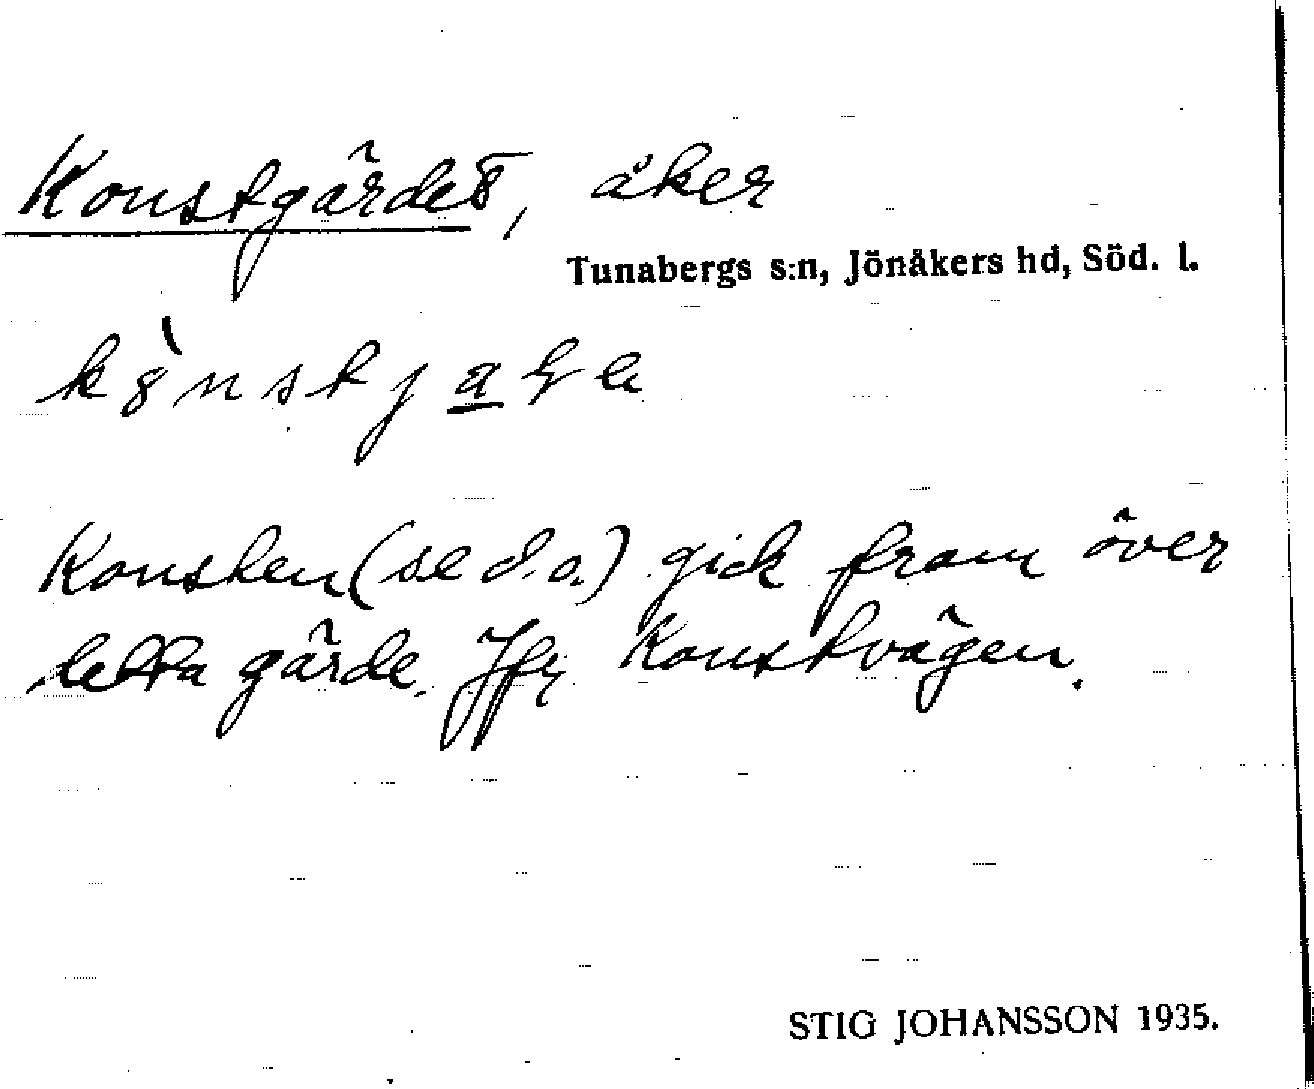 Konstgärdet, åker
Tunabergs s:n, Jönåkers hd, Söd. l.
Konsten (se d.o.) gick fram över
detta gärde. Jfr Konstvägen.
STIG JOHANSSON 1935.